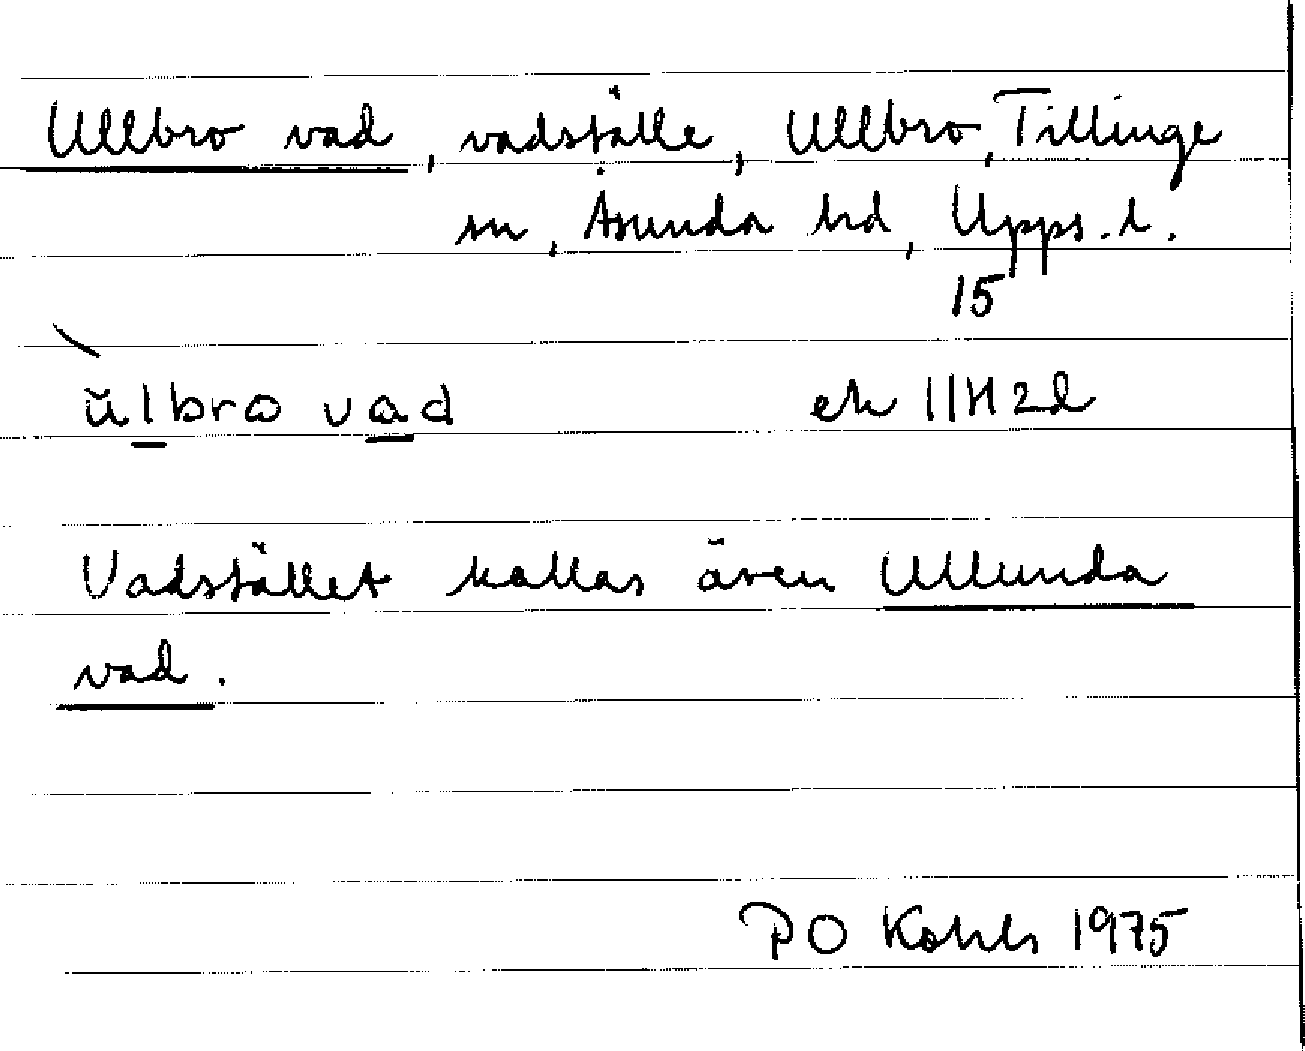 Ullbro vad, vadställe, Ullbro, Tillinge
sn, Åsunda hd, Upps. l.
15
ŭlbro vad ek 11H2d
Vadstället kallas även Ullunda
vad.
PO 1975